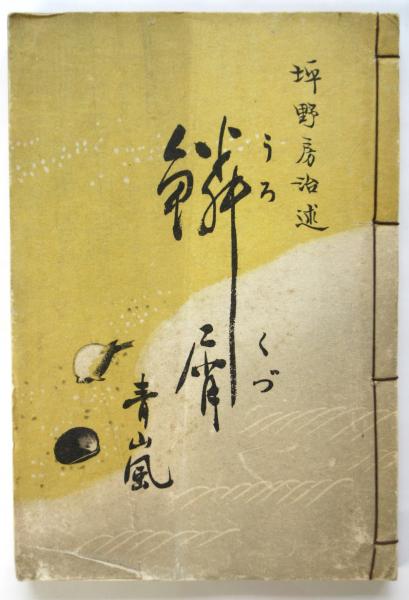 坪野房治述
鱗屑
うろくづ
青嵐